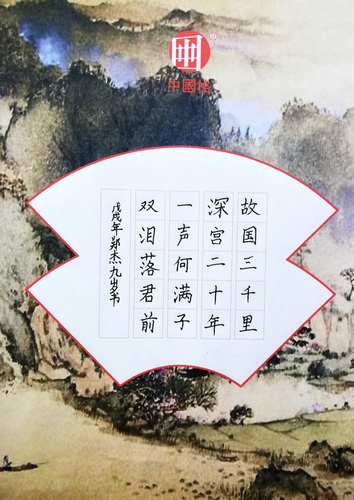 中國格
故国三千里
深宫二十年
一声何满子
双泪落君前
戊戌年郑杰九岁书